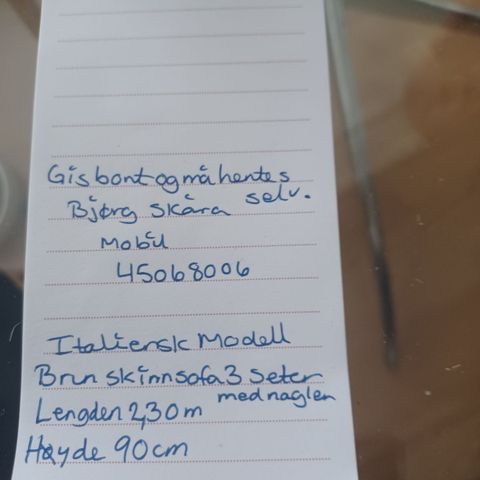 Gis bort og må hentes
selv.
Bjørg Skåra
Mobil
45068006
Italiensk Modell
Brun skinnsofa 3 seter
med naglen
Lengden 2,30 m
Høyde 90 cm